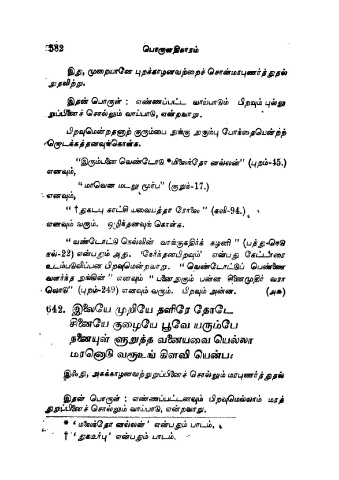 582 பொருளதிகாரம்
இது, முறையானே புறக்காழனவற்றைச் சொன்மரபுணர்த்துதல்
நுதலிற்று.
இதன் பொருள் : எண்ணப்பட்ட வாய்பாடும் பிறவும் புல்லு
றுப்பினைச் சொல்லும் வாய்பாடு, என்றவாறு.
பிறவுமென்றதனாற் குரும்பை
“இரும்பனை வெண்டோடு *மிலைந்தோ னல்லன்” (புறம்-45.)
எனவும்,
“மாவென மடலு மூர்ப” (குறுந்-17.)
எனவும்,
“†துகடபு காட்டி பவைபத்தா ரோலை” (கலி-94.)
எனவும் வரும். ஒழிந்தனவுங் கொள்க.
“வண்டோட்டு நெல்லின் வாங்குகதிர்க் கழனி” (பத்து-நெடு
நல்-22) என்பதும் அது. ‘நேர்ந்தனபிறவும்’ என்பது கேட்டாரை
உடம்படுவிப்பன பிறவுமென்றவாறு. “வெண்டோட்டுப் பெண்ணை
வளர்ந்த நுங்கின்” எனவும் “பனைநுகும் பன்ன சினைமுதிர் வரா
லொடு” (புறம்-249) எனவும் வரும். பிறவும் அன்ன. (அசு)
642. இலையே முறியே தளிரே தோடே
சினையே குழையே பூவே யரும்பே
நனையுள் ளுறுத்த வனையவை யெல்லா
மரனொடு வரூஉங் கிளவி யென்ப.
இஃது, அகக்காழனவற்றுறுப்பினைச் சொல்லும் மரபுணர்த்துதல்
இதன் பொருள் : எண்ணப்பட்டனவும் பிறவுமெல்லாம் மரத்
துறுப்பினைச் சொல்லும் வாய்பாடு, என்றவாறு.
* ‘மலைந்தோ னல்லன்’ என்பதும் பாடம்.
† ‘துகஉர்பு’ என்பதும் பாடம்.